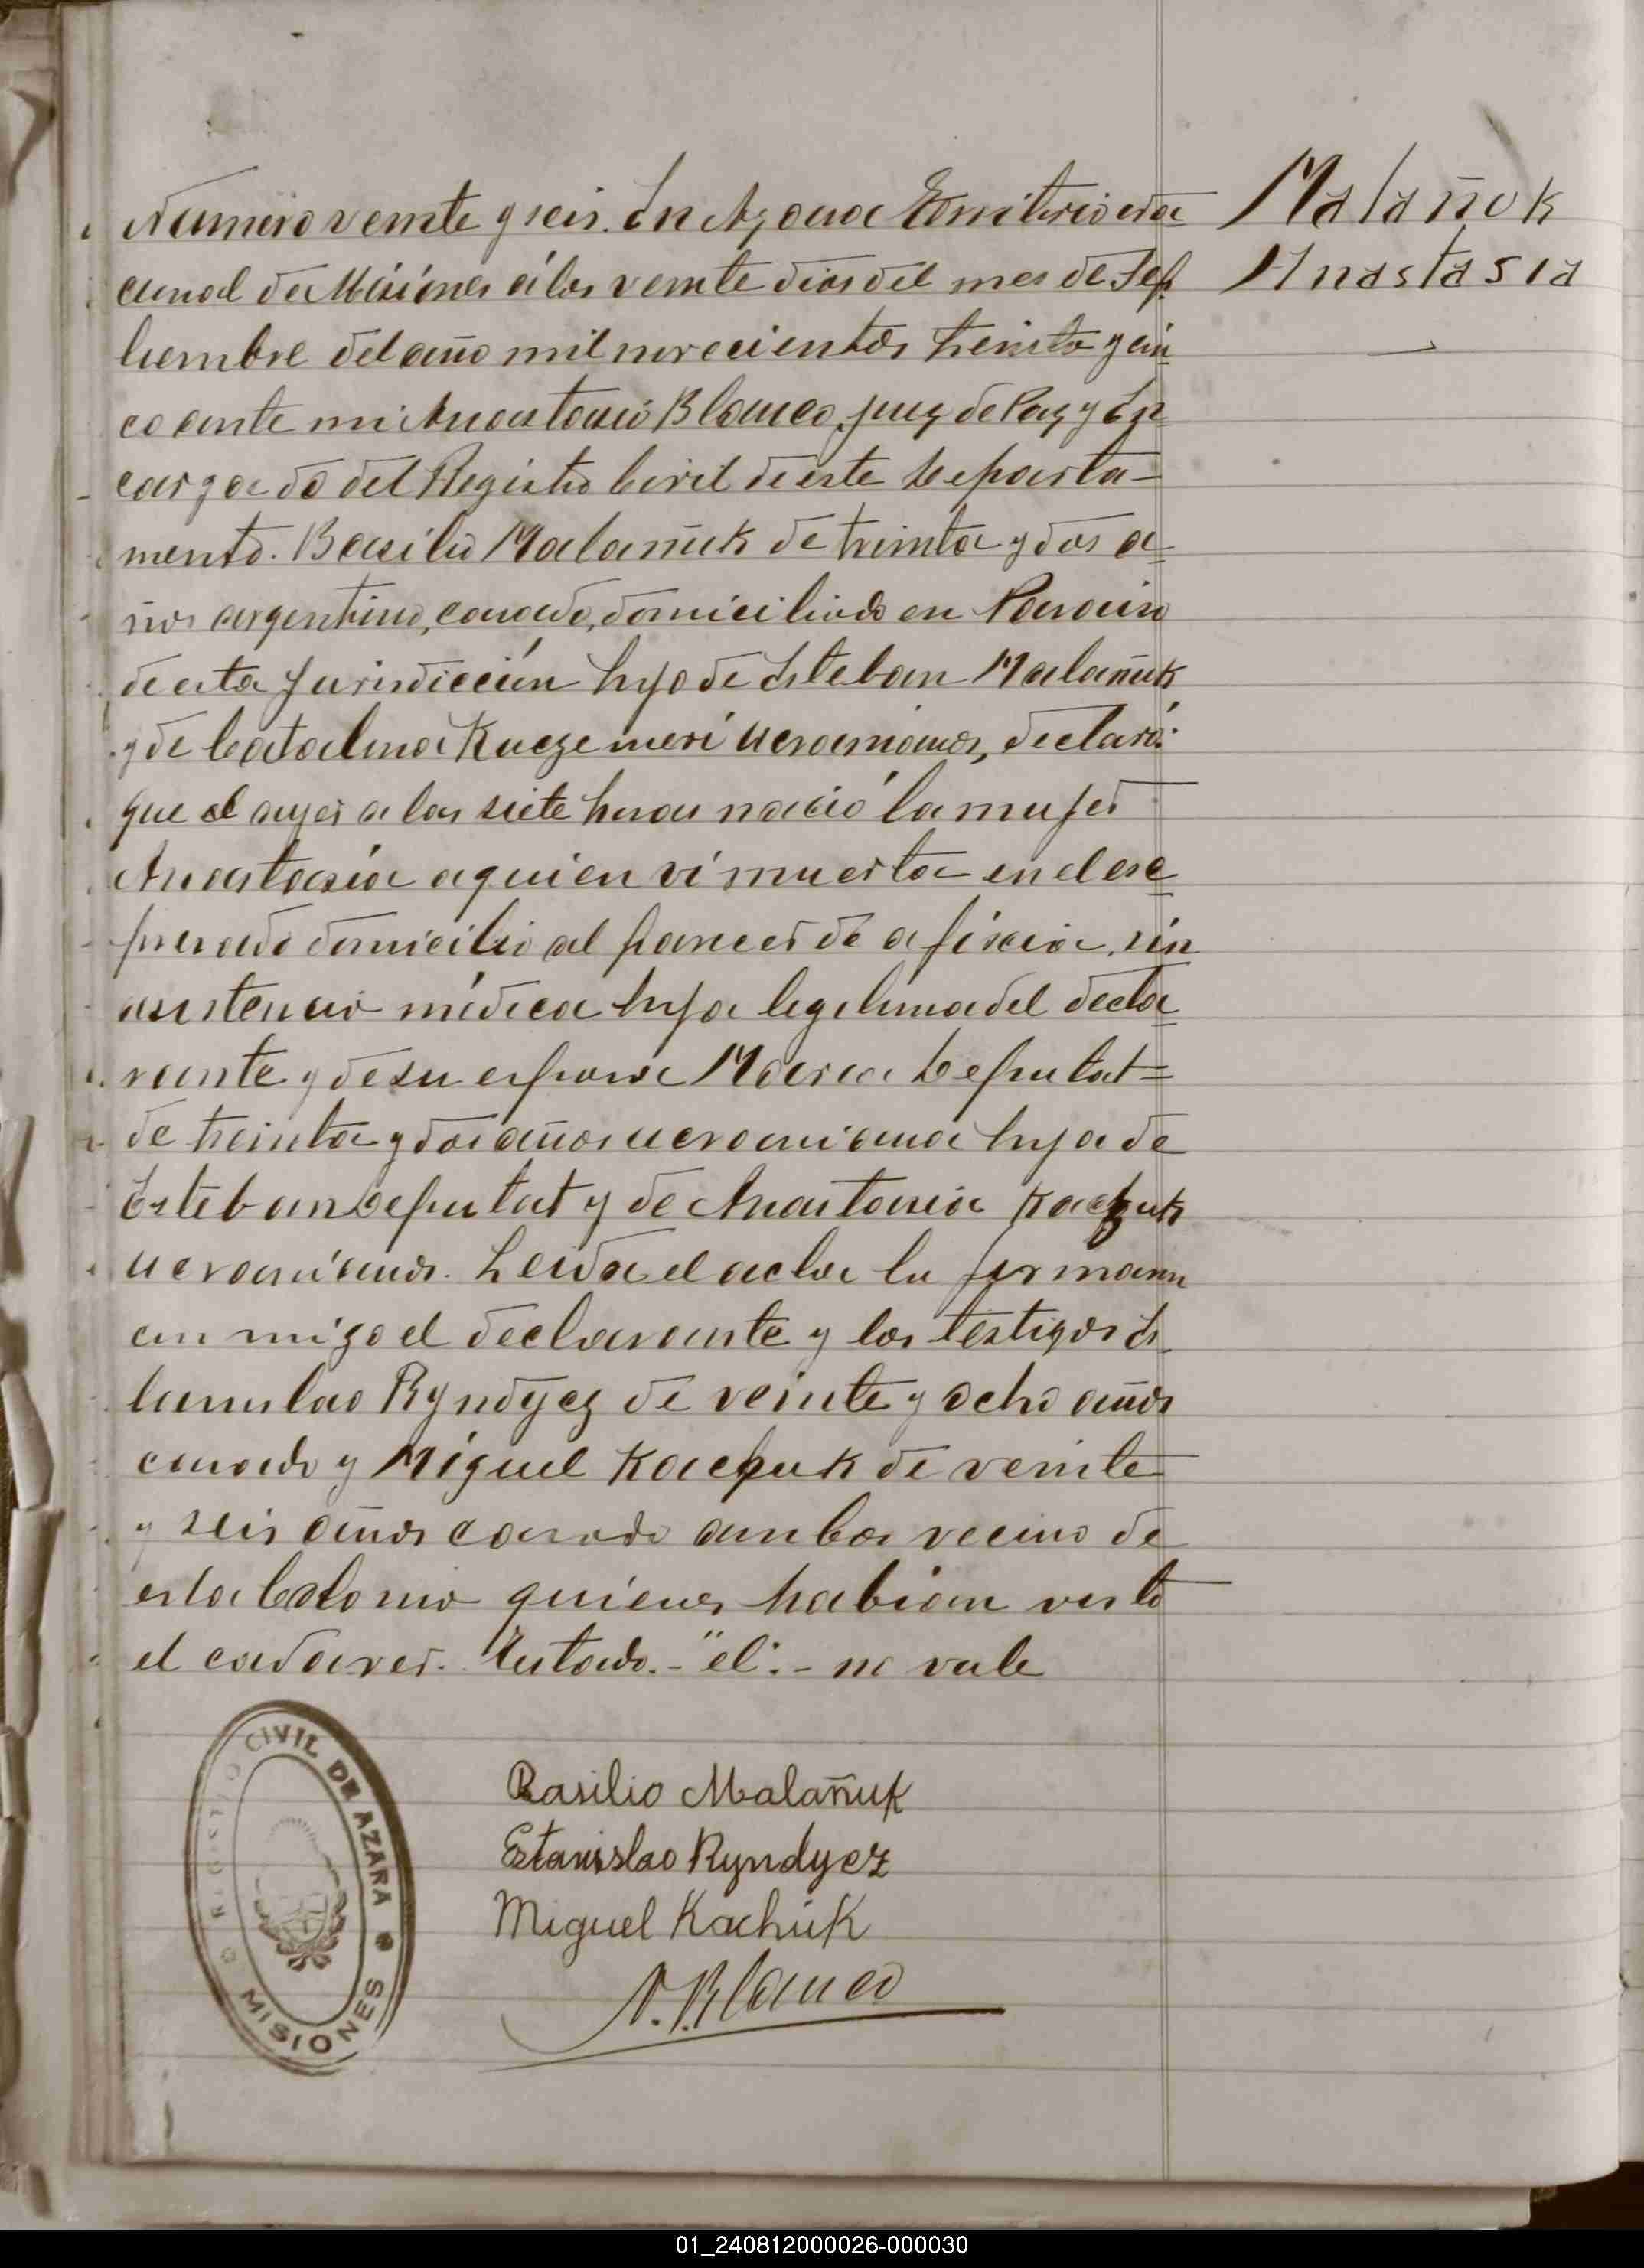 Malañuk
Anastasia
Número veinte y seis. En Azara Territorio na
cional de Misiones á los veinte dias del mes de Sep
tiembre del año mil novecientos treinta y cin
co ante mi Anastasio Blanco, Juez de Paz y En
cargado del Registro Civil de este Departa-
mento. Basilio Malañuk de treinta y dos a
ños argentino, casado, domiciliado en
de esta Jurisdicción hijo de Esteban Malañuk
y de Catalina ucranianos, declaró:
que el ayer a las siete horas nació la mujer
Anastasia a quien ví muerta en el ex
presado domicilio al parecer de afixia, sin
asistencia médica hija legitima del decla
rante y de su esposa Maria Deputat=
de treinta y dos años ucraniana hija de
Esteban Deputat y de Anastasia Kaczuk
ucranianos. Leida el acta la firmaron
con migo el declarante y los testigos Es
tanislao Ryndycz de veinte y ocho años
casado y Miguel Kachuk de veinte
y seis años casado ambos vecino de
esta Colonia quienes habian visto
el cadaver. Testado.- "el".- no vale
REGISTRO CIVIL DE AZARA
MISIONES
Basilio Malañuk
Estanislao Ryndycz
Miguel Kachuk
A. Blanco
01_240812000026-000030